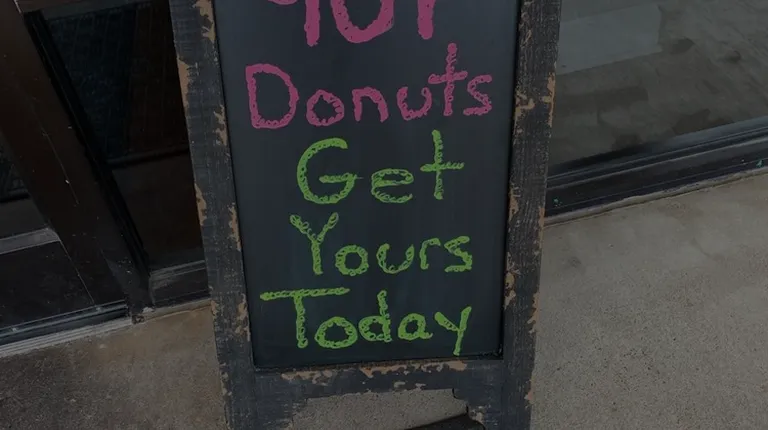 Donuts
Get
Yours
Today